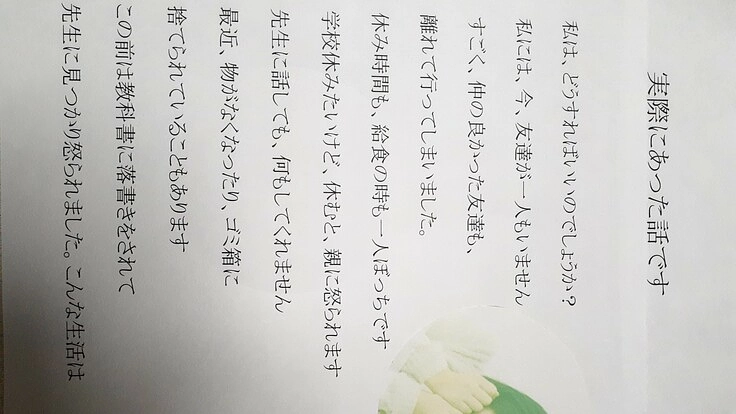 実際にあった話です
私は、どうすればいいのでしょうか？
私には、今、友達が一人もいません
すごく、仲の良かった友達も、
離れて行ってしまいました。
休み時間も、給食の時も一人ぼっちです
学校休みたいけど、休むと、親に怒られます
先生に話しても、何もしてくれません
最近、物がなくなったり、ゴミ箱に
捨てられていることもあります
この前は教科書に落書きをされて
先生に見つかり怒られました。こんな生活は